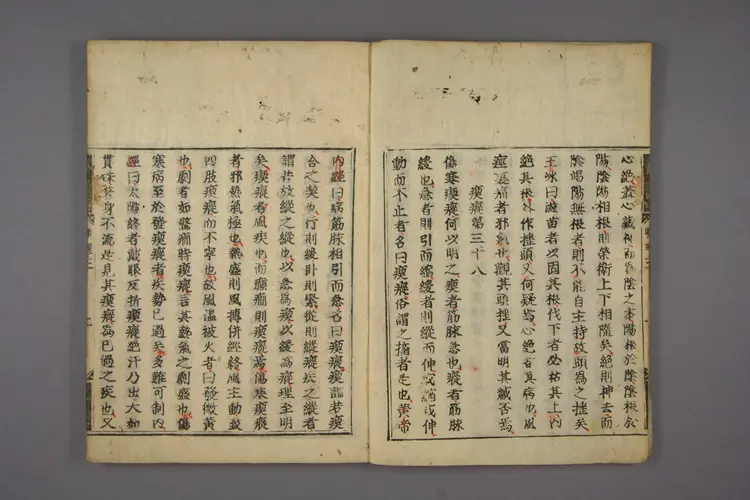 心絶蓋心藏神而為陰之本陽根於陰陰根於
陽陰陽相根則榮衛上下相隨矣絶則神去而
陰竭陽無根者則不能自主持故頭為之揺矣
王冰曰滋苗者必固其根伐下者必枯其上内
絶其根外作揺頭又何疑焉心絶者真病也風
痙裏痛者邪氣也觀其頭揺又當明其臧否焉
瘈瘲第三十八
傷寒瘈瘲何以明之瘈者筋脉急也瘲者筋脉
緩也急者則引而縮緩者則縱而伸或縮或伸
動而不止者名曰瘈瘲俗謂之搐者是也黃帝
内經曰病筋脉相引而急名曰瘈瘲瘈謂若瘈
合之契也行則緩卧則緊從則縱瘲疾之縱者
謂若放縱之縱也以急為瘈以緩為瘲理至明
矣瘈瘲者風疾也而癲癇則瘈瘲焉傷寒瘈瘲
者邪熱氣極也熱盛則風搏併經絡風主動故
四肢瘈瘲而不寧也故風溫被火者曰發微黃
也劇者如驚癇時瘈瘲言其熱氣之劇盛也傷
寒病至於發瘈瘲者疾勢已過矣多難可制内
經曰太陽終者戴眼反折瘈瘲絶汗乃出大如
貫珠著身不流是見其瘈瘲為已過之疾也又